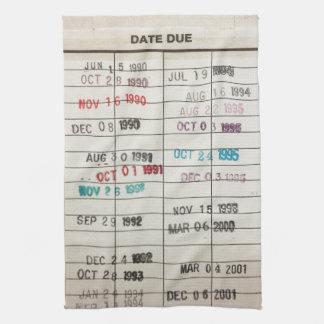 DATE DUE
JUN 15 1990
OCT 28 1990
NOV 16 1990
DEC 08 1990
AUG 30 1991
OCT 01 1991
NOV 26 1992
SEP 29 1992
DEC 24 1992
OCT 28 1993
JAN 24 1994
JUL 19
AUG 16 1994
AUG 22 1995
OCT 03 1995
OCT 24 1995
DEC 03 1995
NOV 15 1998
MAR 06 2000
MAR 04 2001
DEC 06 2001